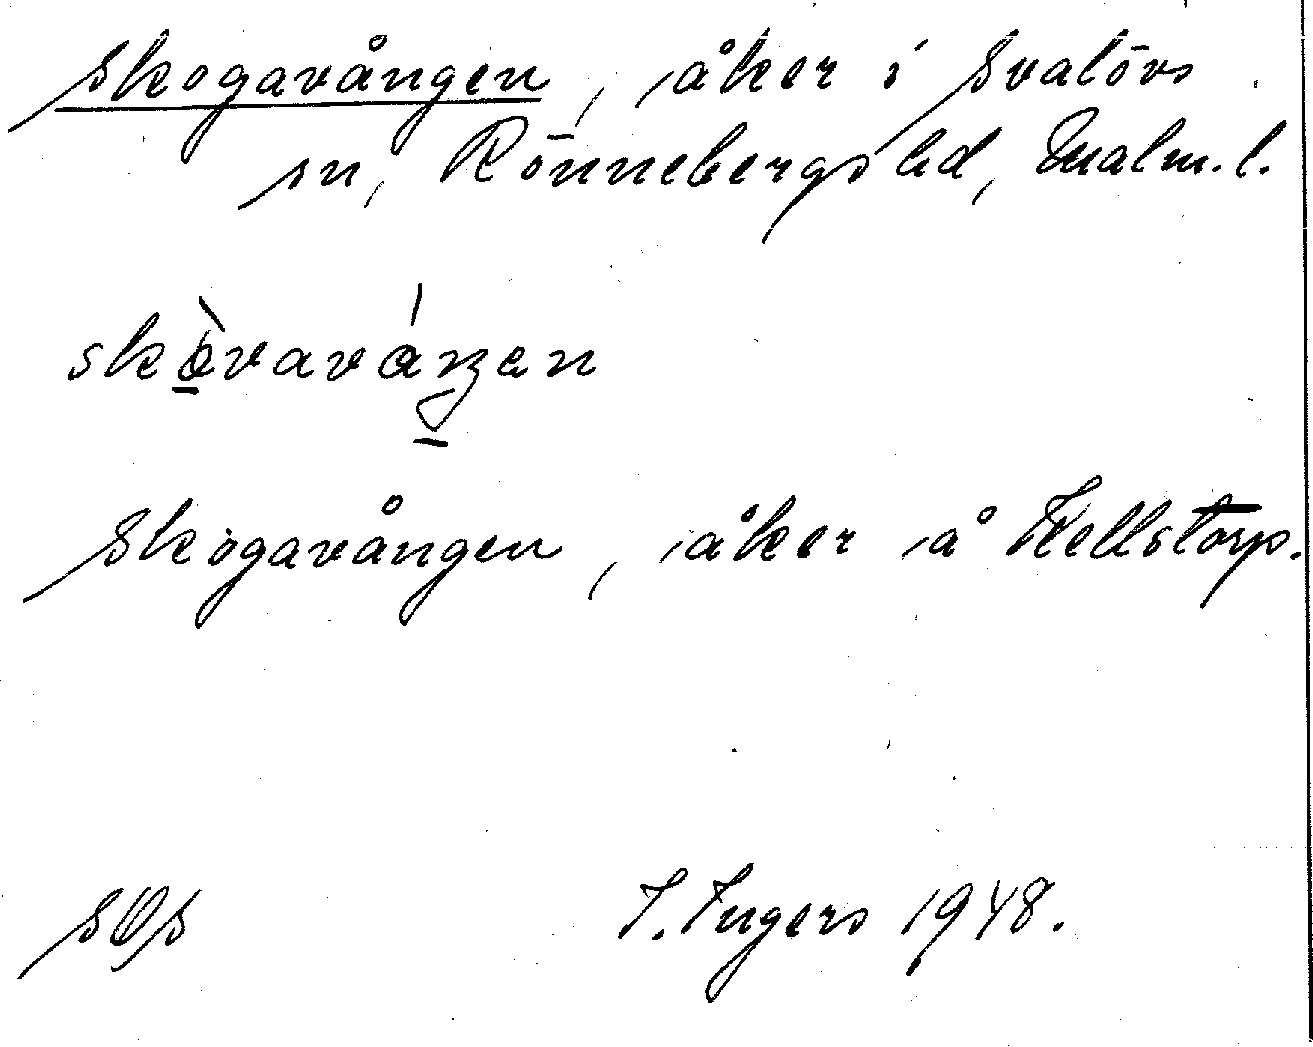 Skogavången, åker i Svalövs
sn, Rönnebergs hd, Malm. l.
Skogavången, åker å Källstorp.
I. Ingers 1948.